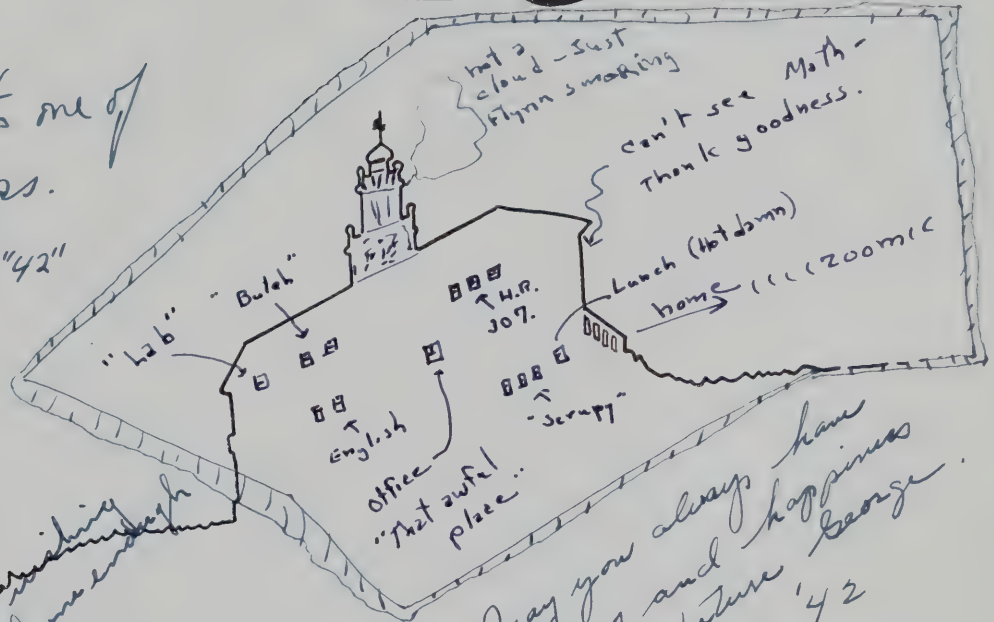 s one of
as.
"42"
not a
cloud - Just
Flynn smoking
can't see Math -
Thank goodness.
Lunch (Hot damn)
home → ((((ZOOM((
"Lab"
"Butch"
H.R.
307.
English
Office
"That awful
place..
"Scrupy"
wishing
enough
May you always have
and happiness
future George
'42